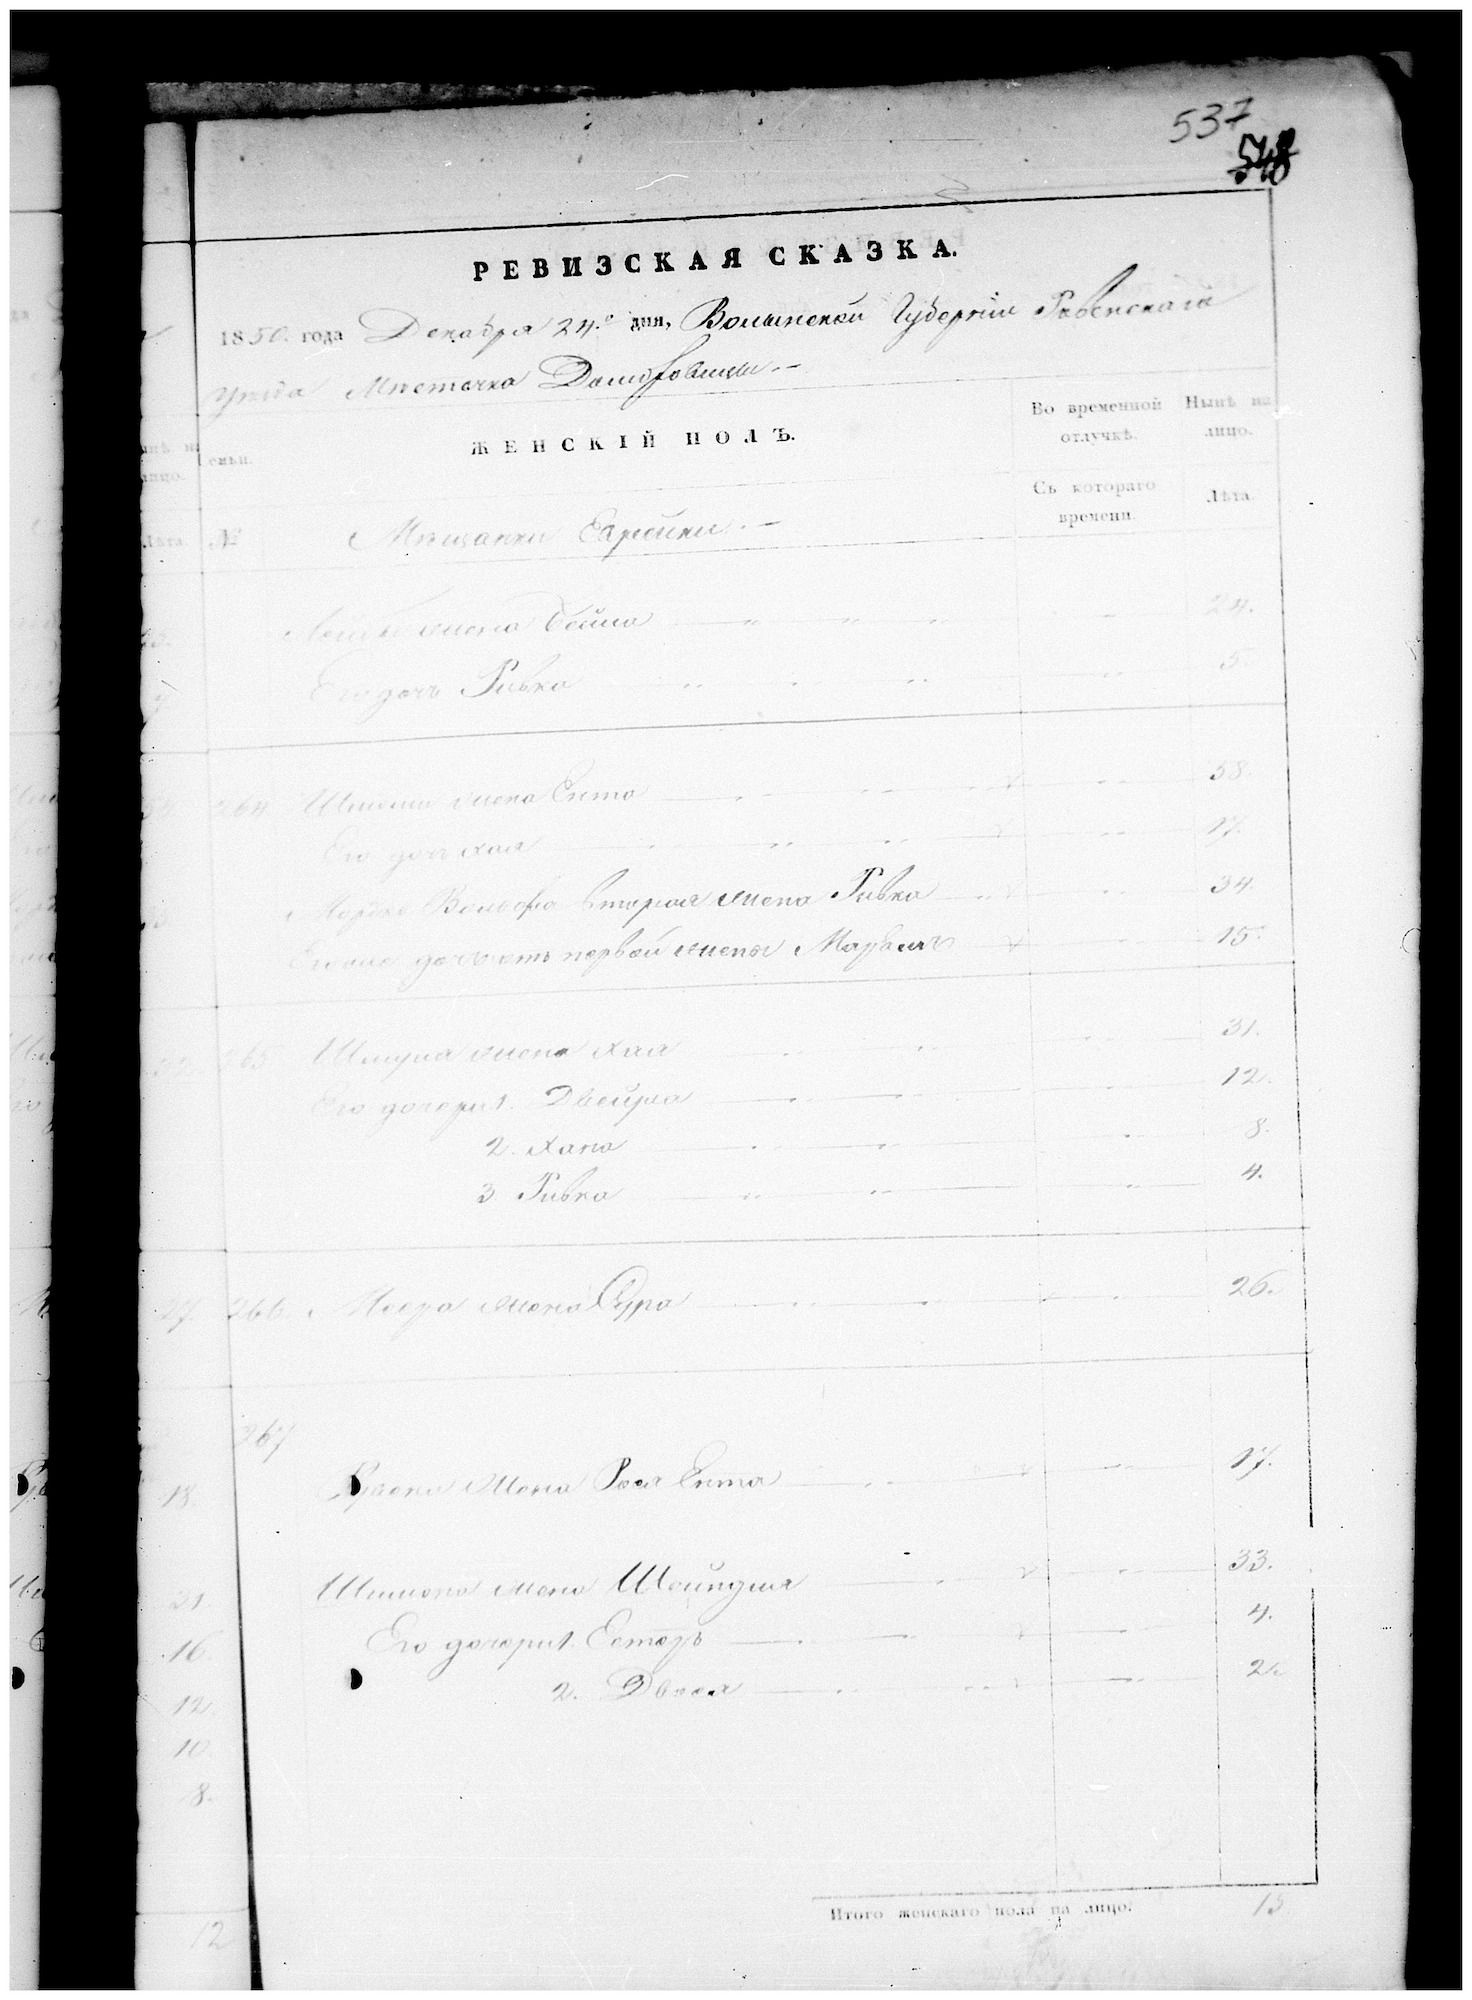 537
548
РЕВИЗСКАЯ СКАЗКА.
1850. года Декабря 24.го дня, Волынской Губернiи Ровенскаго
уѣзда Мѣстечка
ЖЕНСКIЙ ПОЛЪ.
Во временной отлучкѣ.
Нынѣ на лицо.
семьи.
Съ котораго времени.
Лѣта.
Лѣта. № Мѣщанки Еврейки
жена Бейла 24.
Его дочь Ривка 5.
264 жена Ента 58.
Его дочь Хая 17.
Мордко Вольфа вторая жена Ривка 34.
Его же дочь отъ первой жены 15.
265 Шмуля жена Хая 31.
Его дочери 1. Двейра 12.
2. Хана 8.
3 Ривка 4.
27 266 жена Сура 26.
267
18. жена Рося Ента 17.
21. жена Шейндля 33.
16. Его дочери 1. Естеръ 4.
12. 2. Двося 2.
10.
8.
Итого женскаго пола на лицо: 15
12